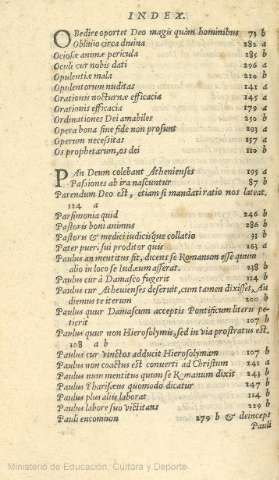 INDEX.
OBedire oportet Deo magis quàm hominibus 73 b
Obliuio circa diuina 282 a
Ociosæ animæ pericula 185 b
Oculi cur nobis dati 296 a
Opulentiæ mala 220 b
Opulentorum nuditas 141 a
Orationis nocturnæ efficacia 145 a
Orationis efficacia 179 a
Ordinationes Dei amabiles 250 b
Opera bona sine fide non prosunt 203 a
Operum necessitas 157 a
Os prophetarum, os dei 110 b
PAn Deum colebant Athenienses 105 a
Passiones ab ira nascuntur 87 b
Parendum Deo est, etiam si mandati ratio nos lateat.
124 a
Parsimonia quid 246 b
Pastoris boni animus 286 b
Pastoris & medici iudiciique collatio 31 b
Pater pueri sui proditor quis 161 a
Paulus an mentitus sit, dicens se Romanum esse quum
alio in loco se Iudæum asserat. 238 b
Paulus cur à Damasco fugerit 114 b
Paulus cur Athenienses deseruit, cum tamen dixisset, Au
diemus te iterum 200 b
Paulus quur Damascum acceptis Pontificum literis pe-
tierit 107 b
Paulus quur non Hierosolymis, sed in via prostratus est.
108 a b
Paulus cur vinctos adducit Hierosolymam 107 b
Paulus non coactus est conuerti ad Christum 241 a
Paulus num mentitus quum se Romanum dixit 243 b
Paulus Pharisæus quomodo dicatur 247 b
Paulus plus aliis laborat 114 b
Paulus labore suo victitans 229 b
Pauli encomion 279 b & deincept
Pauli
Ministerio de Educación, Cultura y Deporte